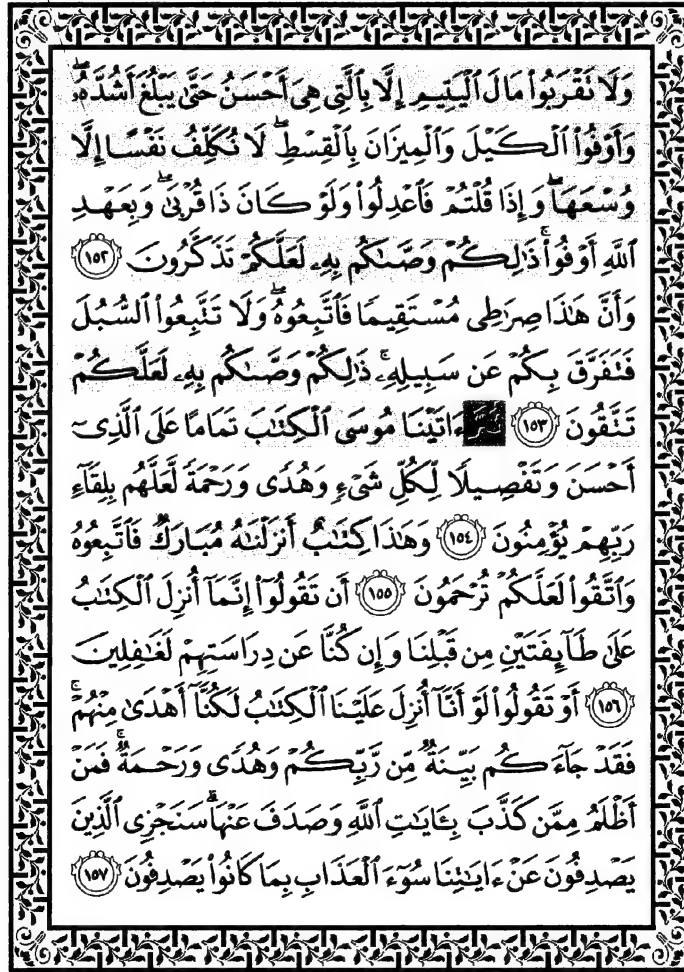 وَلَا نَقْرَبُوا۟ مَالَ ٱلْيَتِيمِ إِلَّا بِٱلَّتِى هِىَ أَحْسَنُ حَتَّىٰ يَبْلُغَ أَشُدَّهُۥۖ
وَأَوْفُوا۟ ٱلْكَيْلَ وَٱلْمِيزَانَ بِٱلْقِسْطِۖ لَا نُكَلِّفُ نَفْسًا إِلَّا
وُسْعَهَاۖ وَإِذَا قُلْتُمْ فَٱعْدِلُوا۟ وَلَوْ كَانَ ذَا قُرْبَىٰۖ وَبِعَهْدِ
ٱللَّهِ أَوْفُوا۟ۚ ذَٰلِكُمْ وَصَّىٰكُم بِهِۦ لَعَلَّكُمْ تَذَكَّرُونَ ١٥٢
وَأَنَّ هَٰذَا صِرَٰطِى مُسْتَقِيمًا فَٱتَّبِعُوهُۖ وَلَا تَتَّبِعُوا۟ ٱلسُّبُلَ
فَتَفَرَّقَ بِكُمْ عَن سَبِيلِهِۦۚ ذَٰلِكُمْ وَصَّىٰكُم بِهِۦ لَعَلَّكُمْ
تَتَّقُونَ ١٥٣ ءَاتَيْنَا مُوسَى ٱلْكِتَٰبَ تَمَامًا عَلَى ٱلَّذِىٓ
أَحْسَنَ وَتَفْصِيلًا لِّكُلِّ شَىْءٍ وَهُدًى وَرَحْمَةً لَّعَلَّهُم بِلِقَآءِ
رَبِّهِمْ يُؤْمِنُونَ ١٥٤ وَهَٰذَا كِتَٰبٌ أَنزَلْنَٰهُ مُبَارَكٌ فَٱتَّبِعُوهُ
وَٱتَّقُوا۟ لَعَلَّكُمْ تُرْحَمُونَ ١٥٥ أَن تَقُولُوٓا۟ إِنَّمَآ أُنزِلَ ٱلْكِتَٰبُ
عَلَىٰ طَآئِفَتَيْنِ مِن قَبْلِنَا وَإِن كُنَّا عَن دِرَاسَتِهِمْ لَغَٰفِلِينَ
١٥٦ أَوْ تَقُولُوا۟ لَوْ أَنَّآ أُنزِلَ عَلَيْنَا ٱلْكِتَٰبُ لَكُنَّآ أَهْدَىٰ مِنْهُمْۚ
فَقَدْ جَآءَكُم بَيِّنَةٌ مِّن رَّبِّكُمْ وَهُدًى وَرَحْمَةٌۚ فَمَنْ
أَظْلَمُ مِمَّن كَذَّبَ بِـَٔايَٰتِ ٱللَّهِ وَصَدَفَ عَنْهَاۗ سَنَجْزِى ٱلَّذِينَ
يَصْدِفُونَ عَنْ ءَايَٰتِنَا سُوٓءَ ٱلْعَذَابِ بِمَا كَانُوا۟ يَصْدِفُونَ ١٥٧